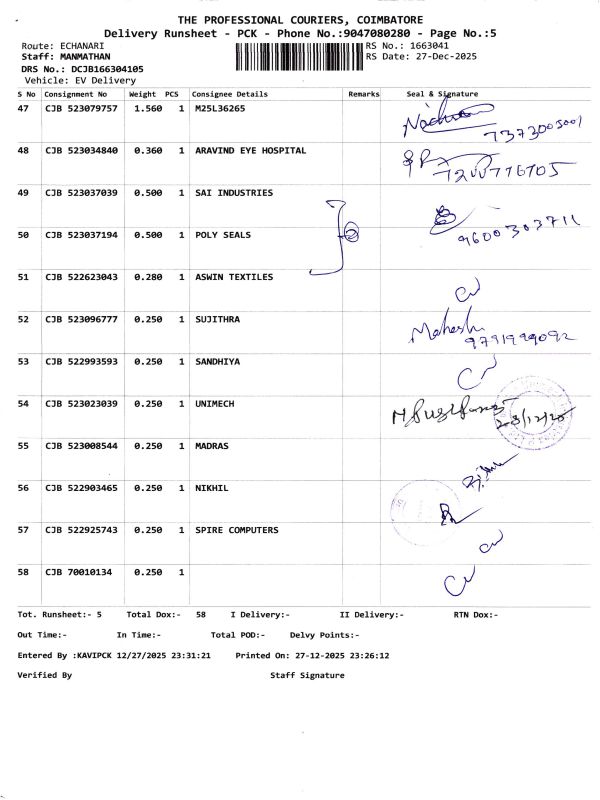 THE PROFESSIONAL COURIERS, COIMBATORE
Delivery Runsheet - PCK - Phone No.:9047080280 - Page No.:5
Route: ECHANARI RS No.: 1663041
Staff: MANMATHAN RS Date: 27-Dec-2025
DRS No.: DCJB166304105
Vehicle: EV Delivery
S No Consignment No Weight PCS Consignee Details Remarks Seal & Signature
47 CJB 523079757 1.560 1 M25L36265
7373005001
48 CJB 523034840 0.360 1 ARAVIND EYE HOSPITAL
49 CJB 523037039 0.500 1 SAI INDUSTRIES
50 CJB 523037194 0.500 1 POLY SEALS
9600303711
51 CJB 522623043 0.280 1 ASWIN TEXTILES
52 CJB 523096777 0.250 1 SUJITHRA
Mahesh
9791999092
53 CJB 522993593 0.250 1 SANDHIYA
54 CJB 523023039 0.250 1 UNIMECH
55 CJB 523008544 0.250 1 MADRAS
56 CJB 522903465 0.250 1 NIKHIL
57 CJB 522925743 0.250 1 SPIRE COMPUTERS
58 CJB 70010134 0.250 1
Tot. Runsheet:- 5 Total Dox:- 58 I Delivery:- II Delivery:- RTN Dox:-
Out Time:- In Time:- Total POD:- Delvy Points:-
Entered By :KAVIPCK 12/27/2025 23:31:21 Printed On: 27-12-2025 23:26:12
Verified By Staff Signature